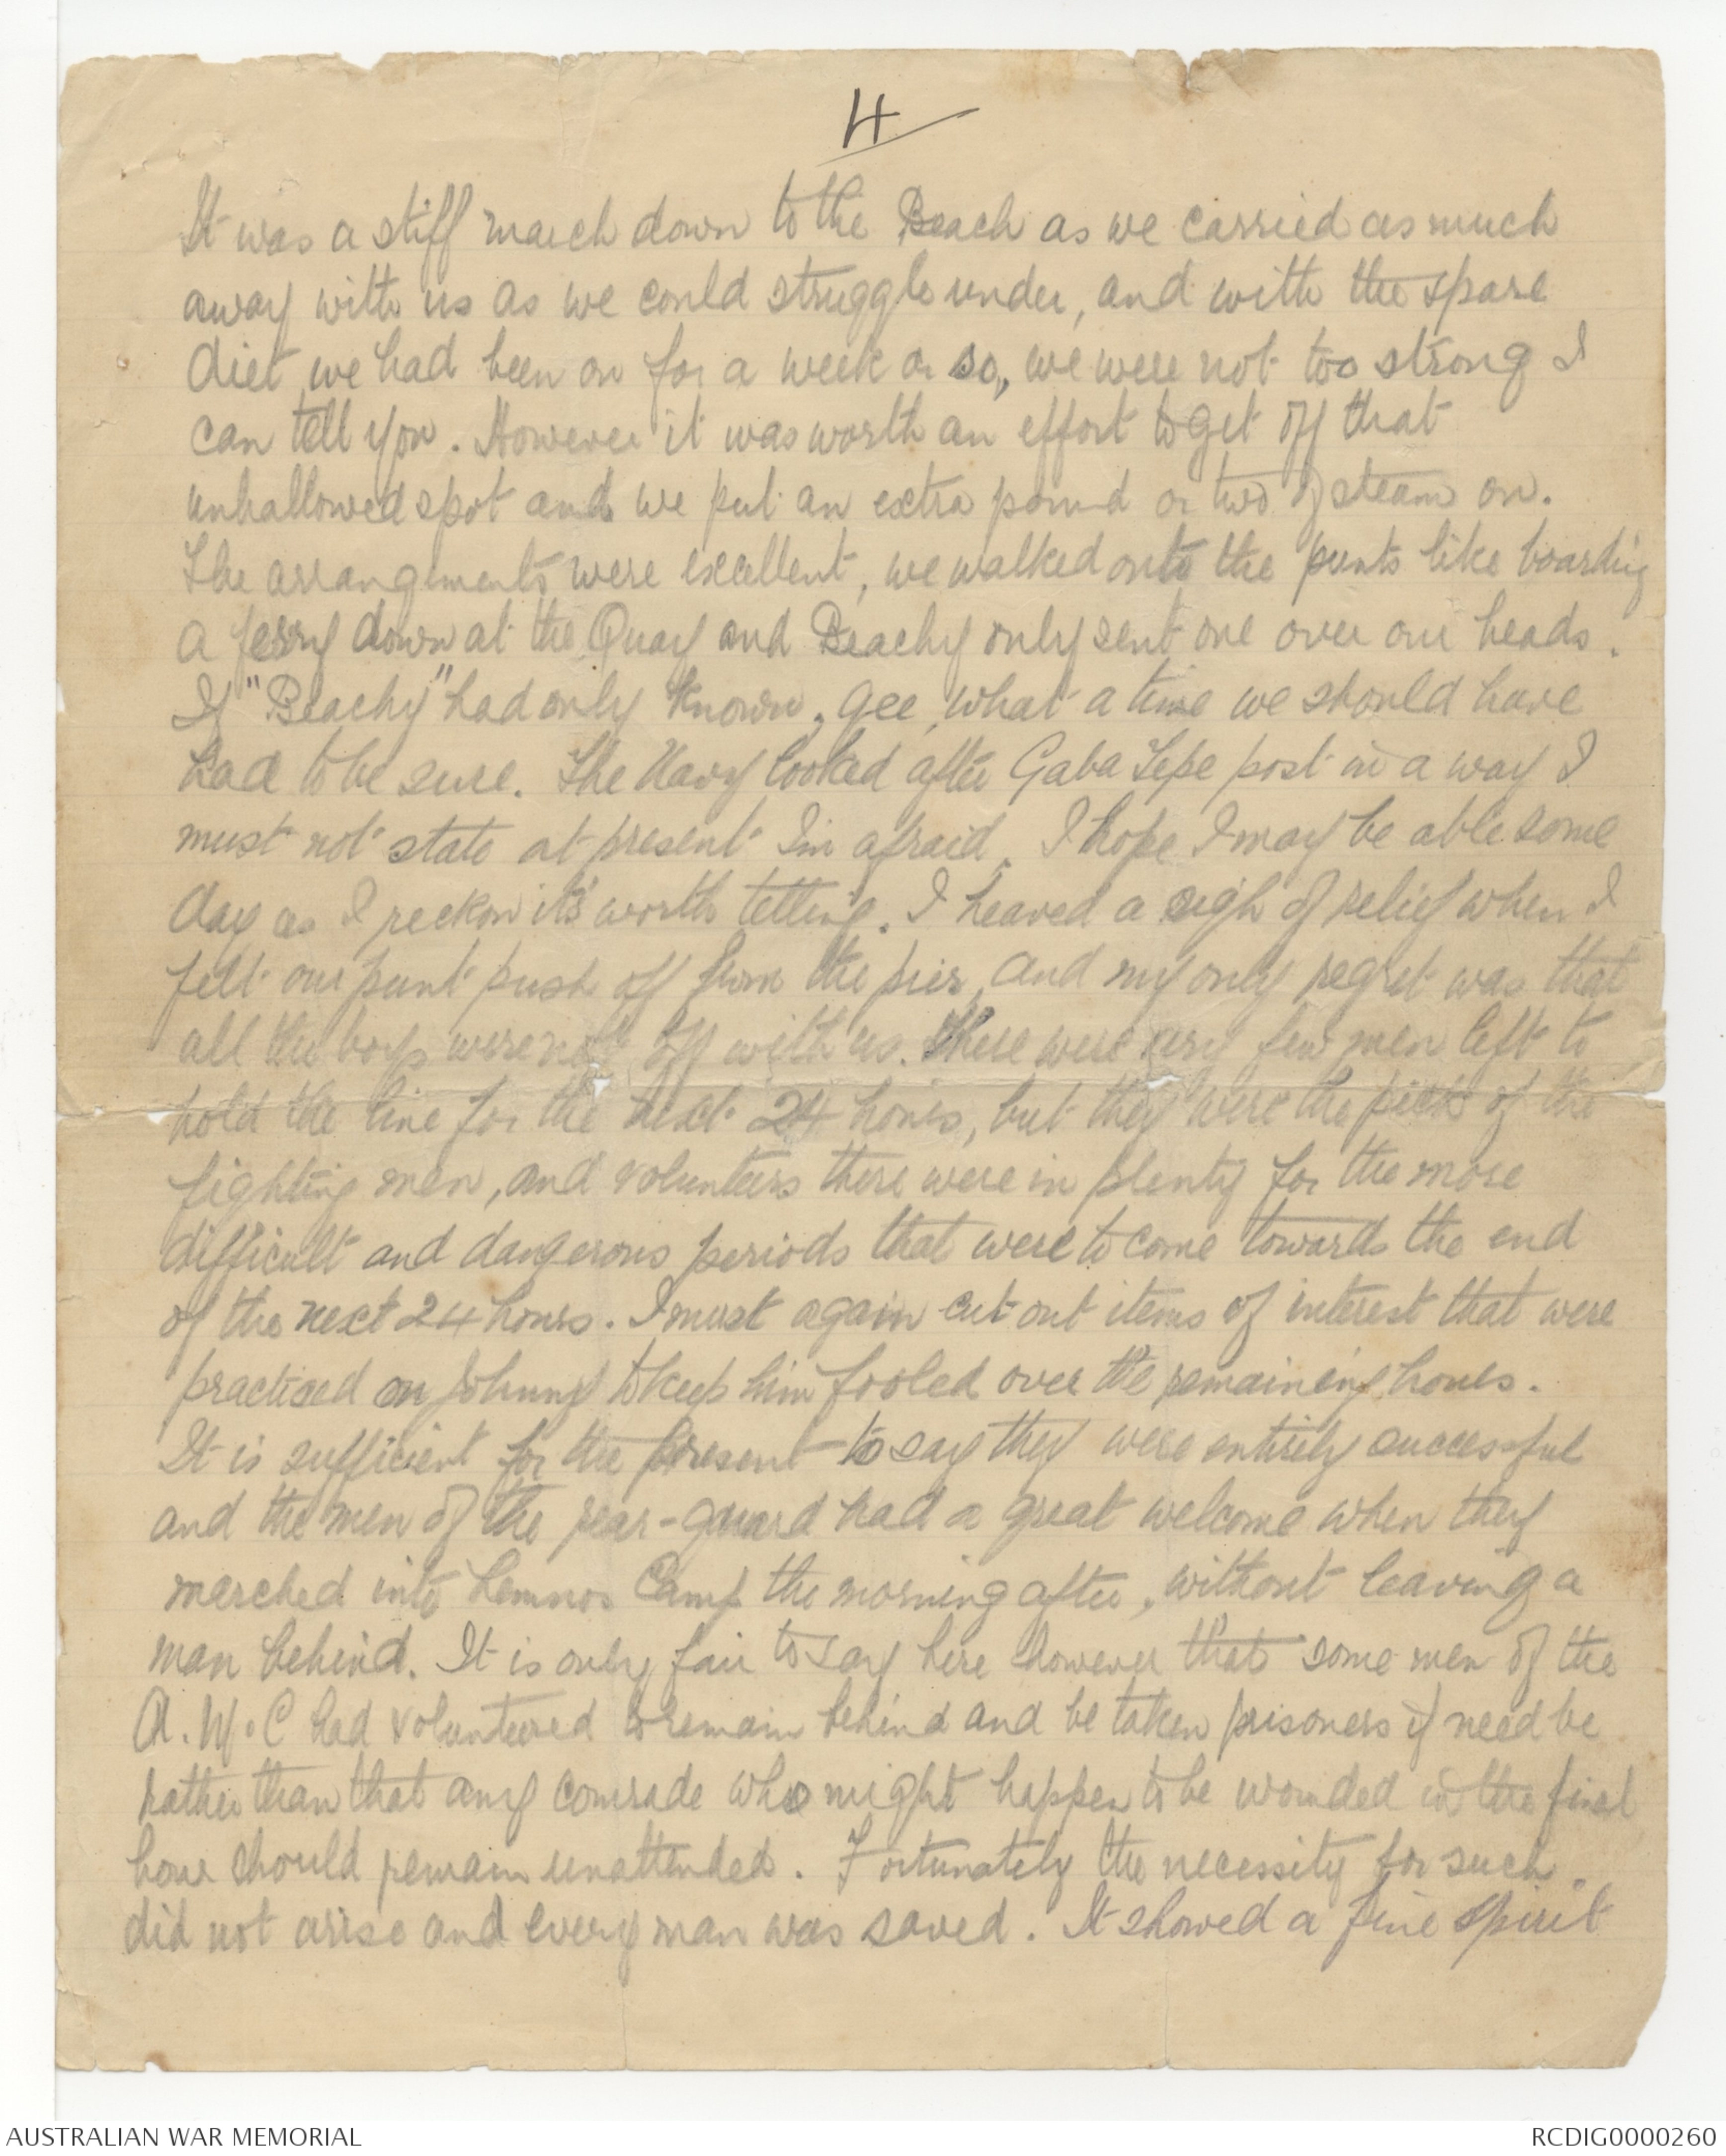 4
It was a stiff march down to the Beach as we carried as much
away with us as we could struggle under, and with the spare
diet we had been on for a week or so, we were not too strong I
can tell you. However it was worth an effort to get off that
unhallowed spot and we put an extra pound or two of steam on.
The arrangements were excellent, we walked onto the punts like boarding
a ferry down at the Quay and Beachy only sent one over our heads.
If "Beachy" had only known, gee, what a time we should have
had to be sure. The Navy looked after Gaba Tepe post in a way I
must not state at present I'm afraid. I hope I may be able some
day as I reckon it's worth telling. I heaved a sigh of relief when I
felt our punt push off from the pier, and my only regret was that
all the boys were not off with us. There were very few men left to
hold the line for the next 24 hours, but they were the pick of the
fighting men, and volunteers there were in plenty for the more
difficult and dangerous periods that were to come towards the end
of the next 24 hours. I must again cut out items of interest that were
practised on Johnny to keep him fooled over the remaining hours.
It is sufficient for the present to say they were entirely successful
and the men of the rear-guard had a great welcome when they
marched into Lemnos Camp the morning after, without leaving a
man behind. It is only fair to say here however that some men of the
A.M.C had volunteered to remain behind and be taken prisoners if need be
rather than that any comrade who might happen to be wounded in the final
hour should remain unattended. Fortunately the necessity for such
did not arise and every man was saved. It showed a fine spirit
AUSTRALIAN WAR MEMORIAL
RCDIG0000260